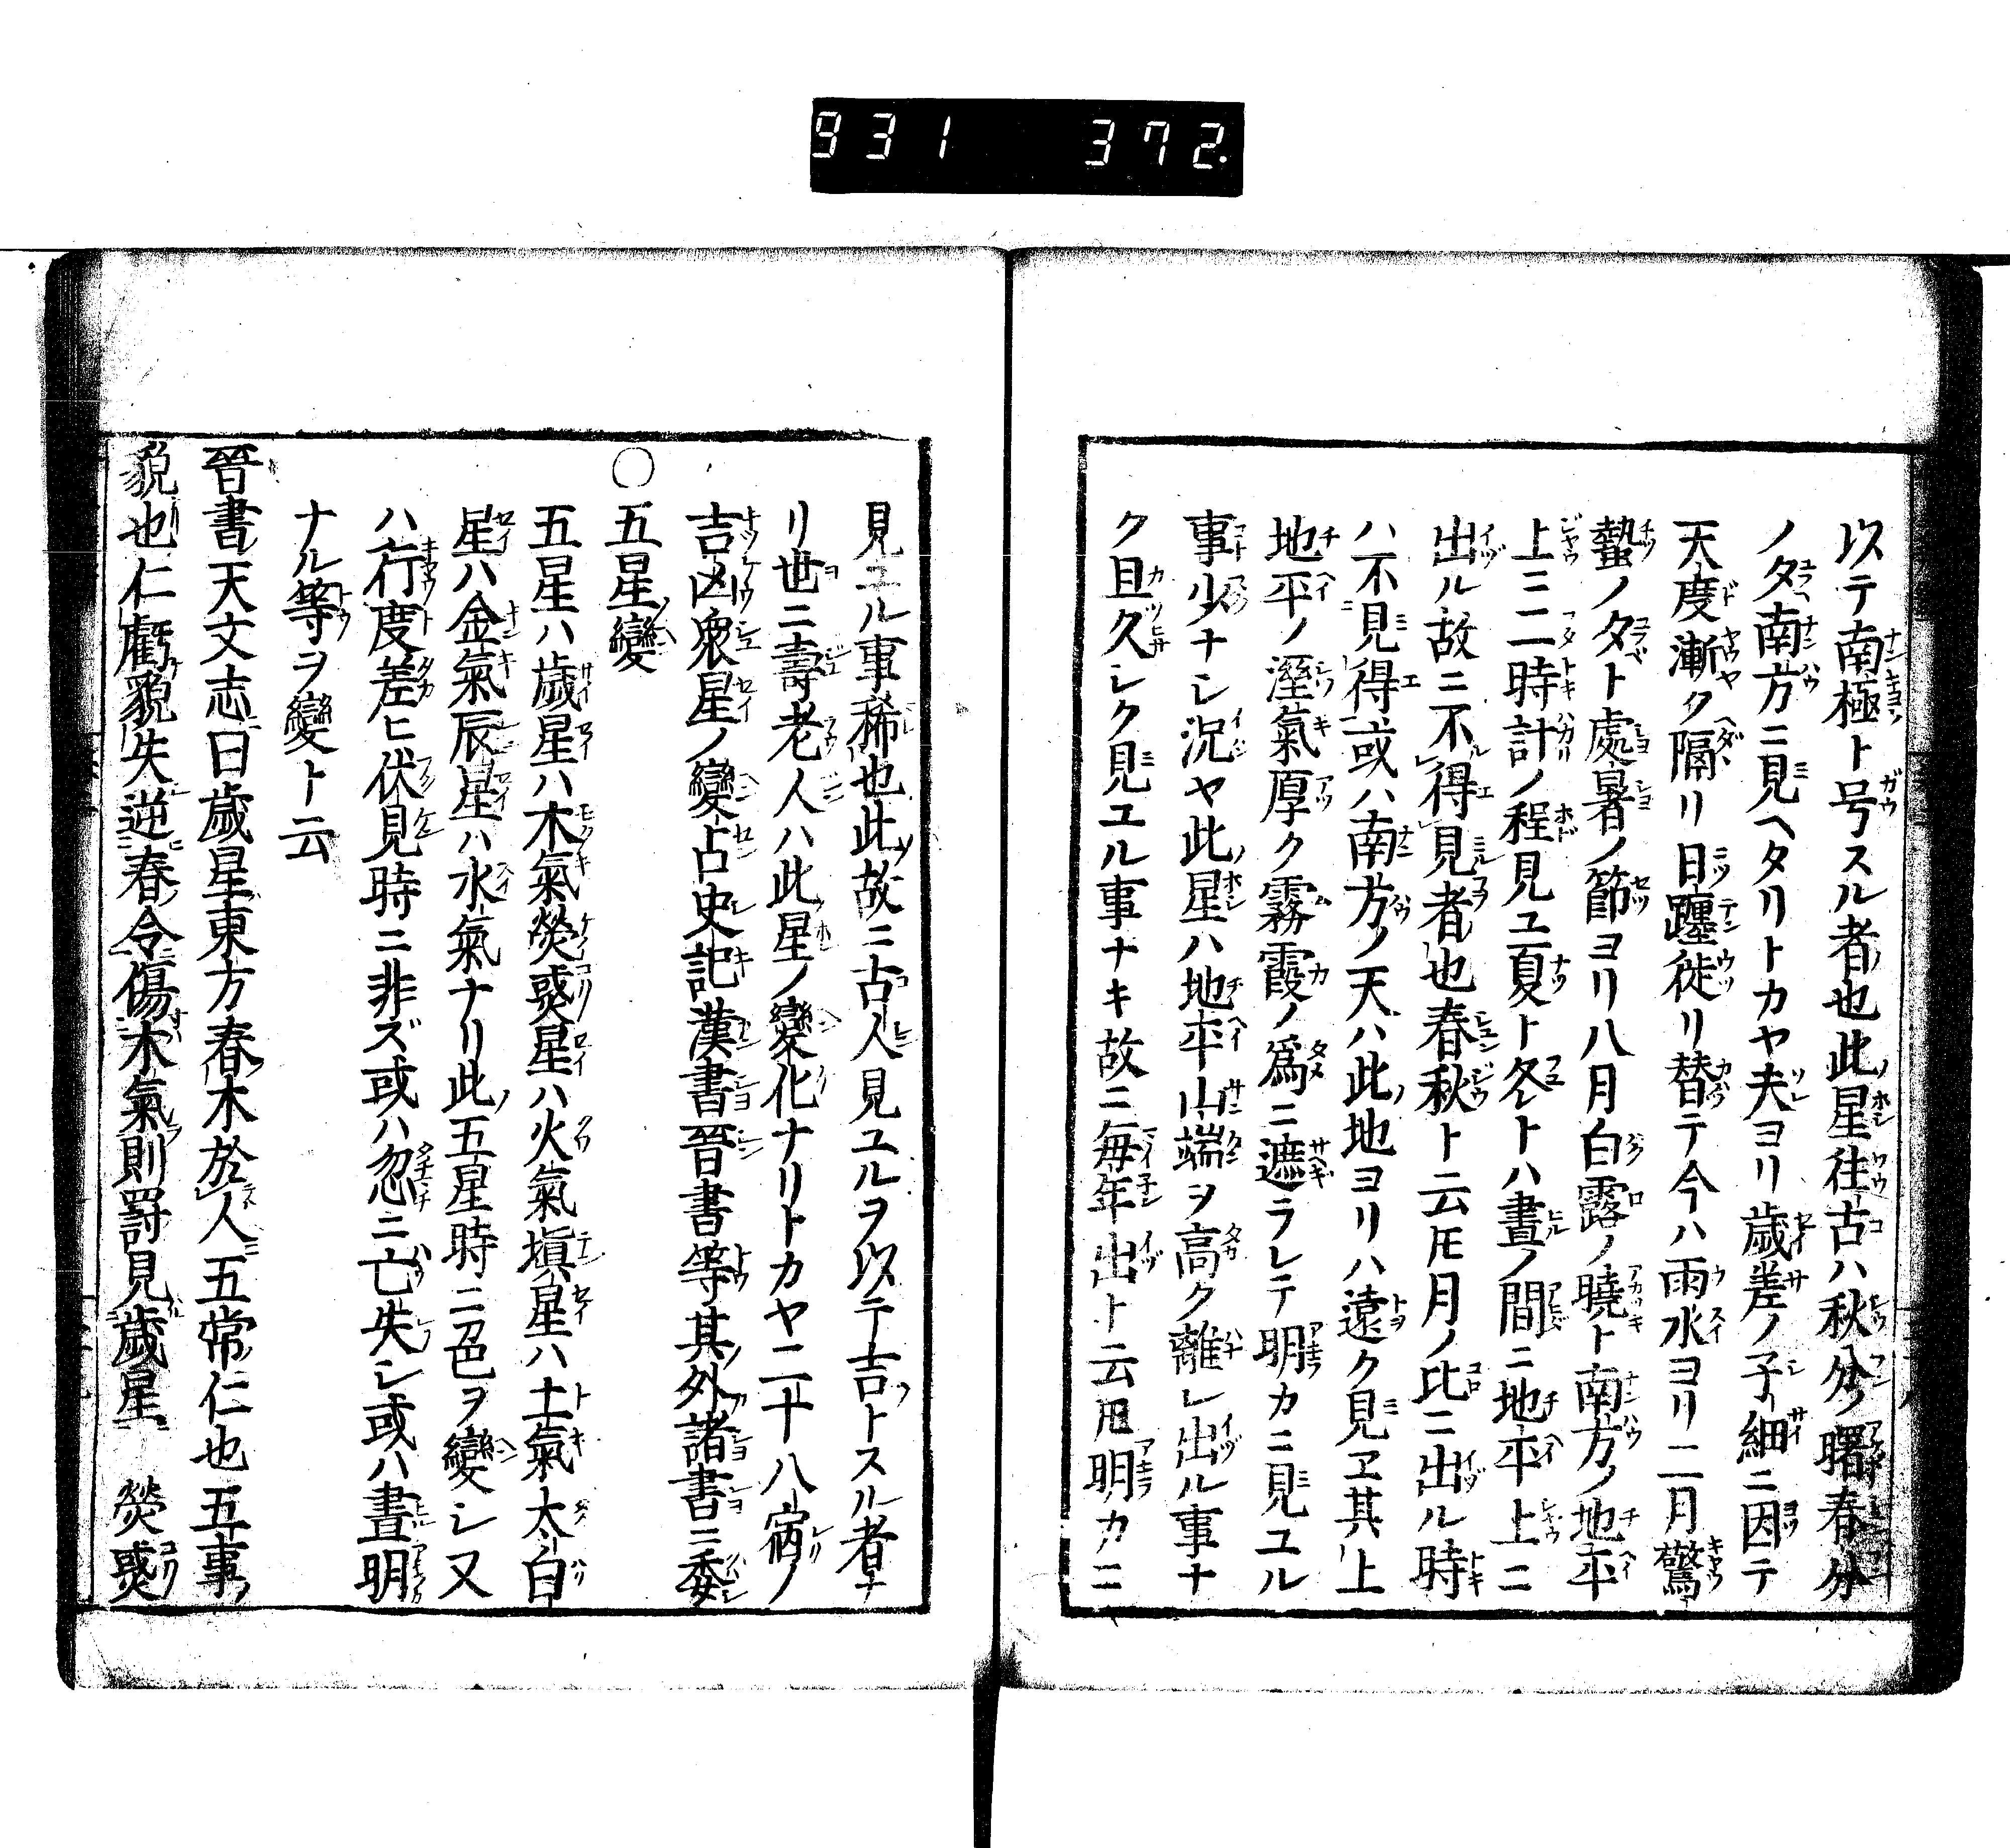 931 372.
以テ南極ト号スル者也此星徃古ハ秋分ノ曙春分
ノ夕南方ニ見ヘタリトカヤ夫ヨリ歳差ノ子細ニ因テ
天度漸ク隔リ日躔徙リ替テ今ハ雨水ヨリ二月驚
蟄ノ夕ト處暑ノ節ヨリ八月白露ノ曉ト南方ノ地平
上ニ二時計ノ程見ユ夏ト冬トハ晝ノ間ニ地平上ニ
出ル故ニ不得見者也春秋ト云𪜈月ノ比ニ出ル時
ハ不見得或ハ南方ノ天ハ此地ヨリハ遠ク見ヱ其上
地平ノ溼氣厚ク霧霞ノ爲ニ遮ラレテ明カニ見ユル
事少ナシ況ヤ此星ハ地平山端ヲ高ク離レ出ル事ナ
ク且久シク見ユル事ナキ故ニ毎年出ト云𪜈明カニ
見ユル事稀也此故ニ古人見ユルヲ以テ吉トスル者ナ
リ世ニ壽老人ハ此星ノ變化ナリトカヤ二十八宿ノ
吉凶衆星ノ變占史記漢書晉書等其外諸書ニ委
〇五星變
五星ハ歳星ハ木氣熒惑星ハ火氣塡星ハ土氣太白
星ハ金氣辰星ハ水氣ナリ此五星時ニ色ヲ變シ又
ハ行度差ヒ伏見時ニ非ズ或ハ忽ニ亡失シ或ハ晝明
ナル等ヲ變ト云
晉書天文志曰歳星東方春木於人五常仁也五事
貌也仁虧貌失逆春令傷木氣則罸見歳星 熒惑